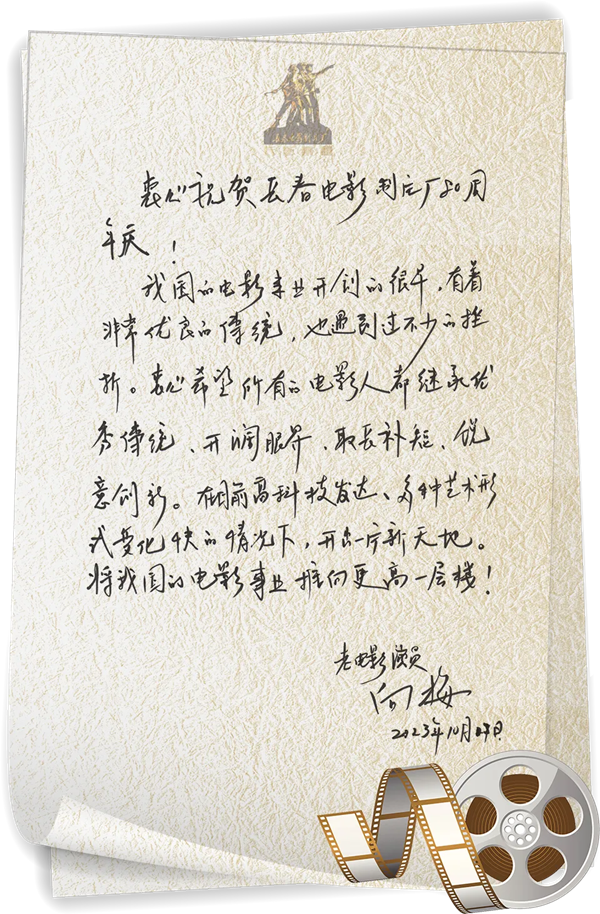 衷心祝贺长春电影制片厂80周
年庆!
我国的电影事业开创的很早,有着
非常优良的傳统,也遇到过不少的挫
折。衷心希望所有的电影人都继承优
秀傳统、开阔眼界、取长补短、锐
意创新。在目前高科技发达、多种艺术形
式变化快的情况下,开出一片新天地。
将我国的电影事业推向更高一层楼!
老电影演员
向梅
2023年10月